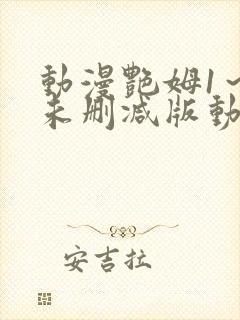 動漫艷姆1～
未刪減版動
安吉拉